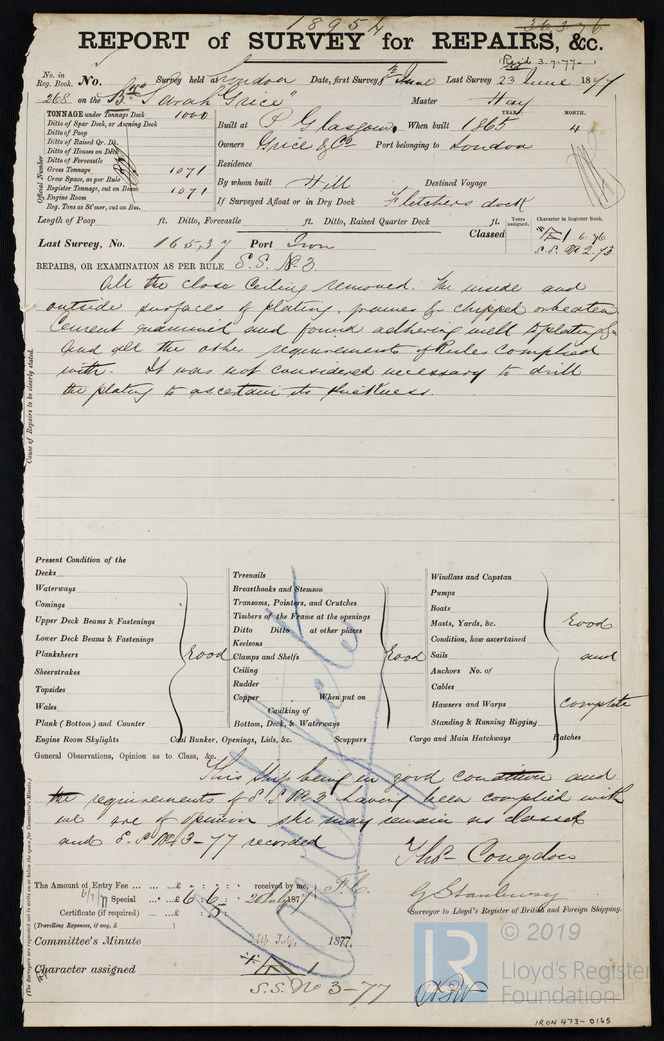 18954
36376
REPORT of SURVEY for REPAIRS, &c.
(Rec'd 3.7.77
No. in Reg. Book. No. Survey held at London Date, first Survey 8th June Last Survey 23 June 1877
268 on the "Sarah Grice" Master Hay
TONNAGE under Tonnage Deck 1000
Ditto of Spar Deck, or Awning Deck
Ditto of Poop
Ditto of Raised Qr. Dk.
Ditto of Houses on Deck
Ditto of Forecastle
Gross Tonnage 1071
Crew Space, as per Rule
Register Tonnage, cut on Beam 1071
Engine Room
Reg. Tons as St'mer, cut on Bm.
Official Number
Built at P Glasgow. When built 1865 YEAR. MONTH. 4
Owners Grice & Co Port belonging to London
Residence
By whom built Hill Destined Voyage
If Surveyed Afloat or in Dry Dock Fletchers dock
Length of Poop ft. Ditto, Forecastle ft. Ditto, Raised Quarter Deck ft.
Years assigned. Character in Register Book.
Classed 1 6.76
S.S. No 2.73
Last Survey, No. 16537 Port Iron
REPAIRS, OR EXAMINATION AS PER RULE S.S. No 3
All the close Ceiling removed. The inside and
outside surfaces of plating, frames &c chipped or beaten
Cement examined and found adhering well to plating &c
And all the other requirements of Rules complied
with. It was not considered necessary to drill
the plating to ascertain its thickness.
Cause of Repairs to be clearly stated.
Present Condition of the
Decks
Waterways
Comings
Upper Deck Beams & Fastenings
Lower Deck Beams & Fastenings
Planksheers
Sheerstrakes
Topsides
Wales
Plank (Bottom) and Counter
Good
Treenails
Breasthooks and Stemson
Transoms, Pointers, and Crutches
Timbers of the Frame at the openings
Ditto Ditto at other places
Keelsons
Clamps and Shelfs
Ceiling
Rudder
Copper When put on
Caulking of
Bottom, Deck, & Waterways
Good
Windlass and Capstan
Pumps
Boats
Masts, Yards, &c.
Condition, how ascertained
Sails
Anchors No. of
Cables
Hawsers and Warps
Standing & Running Rigging
Good
and
Complete
Engine Room Skylights Coal Bunker, Openings, Lids, &c. Scuppers Cargo and Main Hatchways Hatches
General Observations, Opinion as to Class, &c.
This Ship being in good condition and
the requirements of S.S. No 3 having been complied with
we are of opinion she may remain as classed
and S.S. No 3-77 recorded
Thos Congdon
The Amount of Entry Fee ... ...£ : : received by me,
6/7/77 Special ... ...£ 6 : 6 : 20 July 1877
Certificate (if required) ... ...£ : 5
(Travelling Expenses, if any, £ )
G Stanbury
Surveyor to Lloyd's Register of British and Foreign Shipping.
Committee's Minute July, 1877.
Character assigned 1
S.S. No 3-77
(The Surveyors are requested not to write on or below the space for Committee's Minute.)
LR
© 2019
Lloyd's Register
Foundation
IRON 473-0165